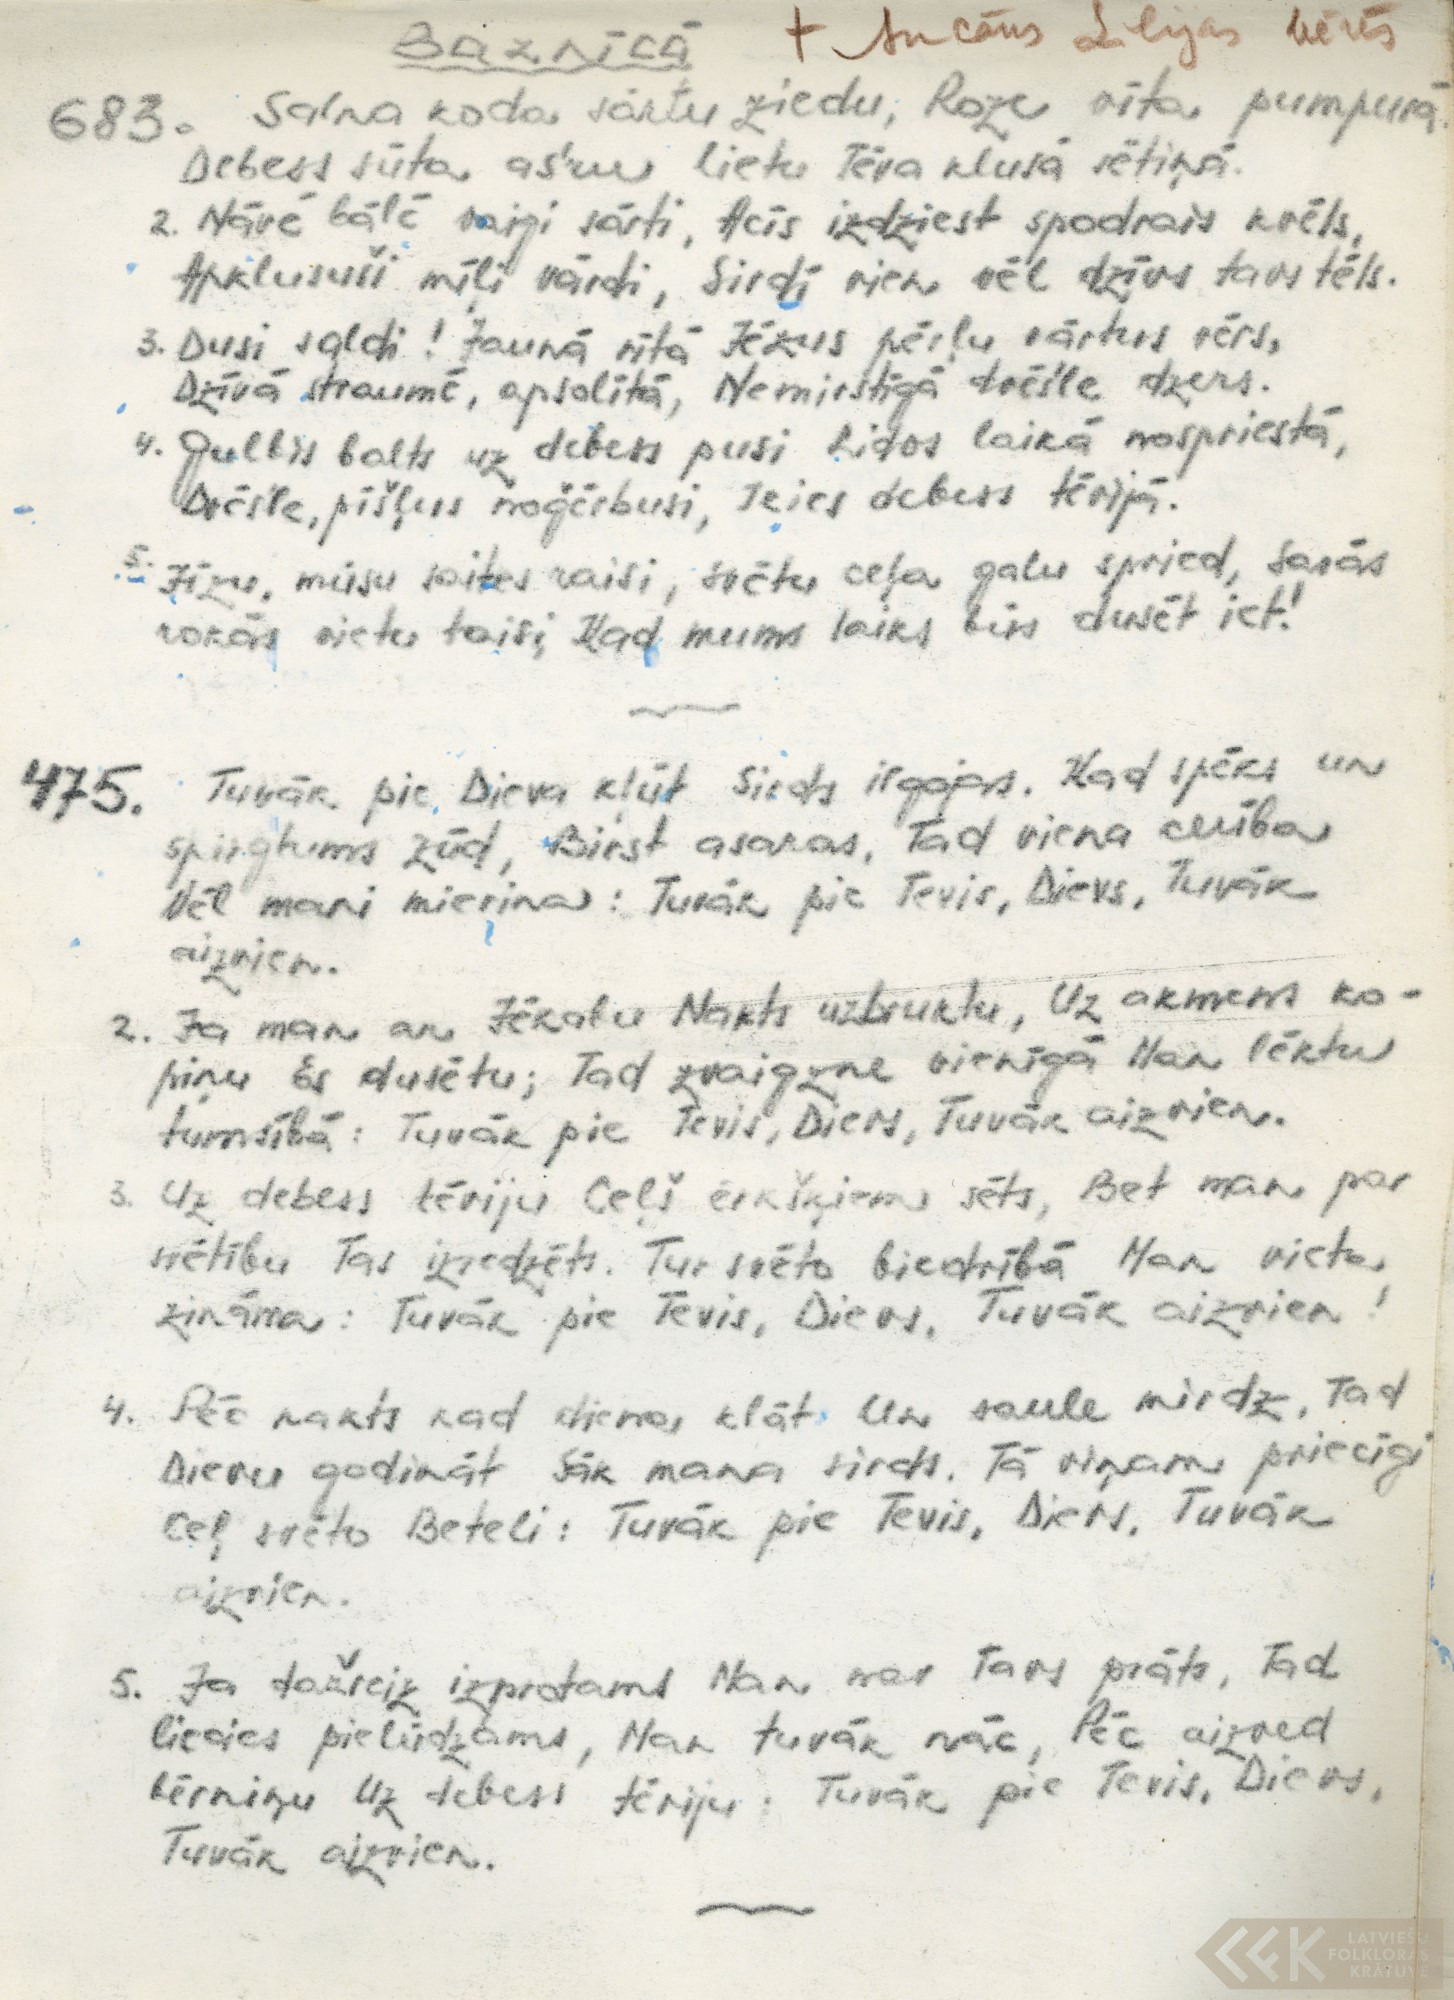 Baznīcā + Ancāns Lilijas bērēs
683. Salna koda sārtu ziedu, Roze vīta pumpurā.
Debess sūta as'ru lietu Tēva klusā sētiņā.
2. Nāvē bālē vaigi sārti, Acīs izdziest spodrais kvēls,
Apklusuši mīļi vārdi, Sirdī vien vēl dzīvs tavs tēls.
3. Dusi saldi! Jaunā rītā Jēzus pērļu vārtus vērs,
Dzīvā straumē, apsolītā, Nemirstīgā dvēs'le dzers.
4. Gulbis balts uz debess pusi Lidos laikā nospriestā,
Dvēs'le, pīšļus noģērbusi, Ieies debess tēvijā.
5. Jēzu, mūsu saites raisi, svētu ceļa galu spried, Savās
rokās vietu taisi, Kad mums laiks būs dusēt iet!
475. Tuvāk pie Dieva kļūt Sirds ilgojas. Kad spēks un
spirgtums zūd, Birst asaras, Tad viena cerība
Vēl mani mierina: Tuvāk pie Tevis, Dievs, Tuvāk
aizvien.
2. Ja man ar Jēkabu Nakts uzbruktu, Uz akmens ko-
piņu Es dusētu; Tad zvaigzne vienīgā Man lēktu
tumsībā: Tuvāk pie Tevis, Dievs, Tuvāk aizvien.
3. Uz debess tēviju Ceļš ērkšķiem sēts, Bet man par
svētību Tas izredzēts. Tur svēto biedrībā Man vieta
zināma: Tuvāk pie Tevis, Dievs, Tuvāk aizvien!
4. Pēc nakts kad diena klāt Un saule mirdz, Tad
Dievu godināt Sāk mana sirds. Tā viņam priecīgi
Ceļ svēto Beteli: Tuvāk pie Tevis, Dievs, Tuvāk
aizvien.
5. Ja dažreiz izprotams Man nav Tavs prāts, Tad
liecies pielūdzams, Man tuvāk nāc, Pēc aizved
bērniņu Uz debess tēviju: Tuvāk pie Tevis, Dievs,
Tuvāk aizvien.
LATVIEŠU
FOLKLORAS
KRĀTUVE